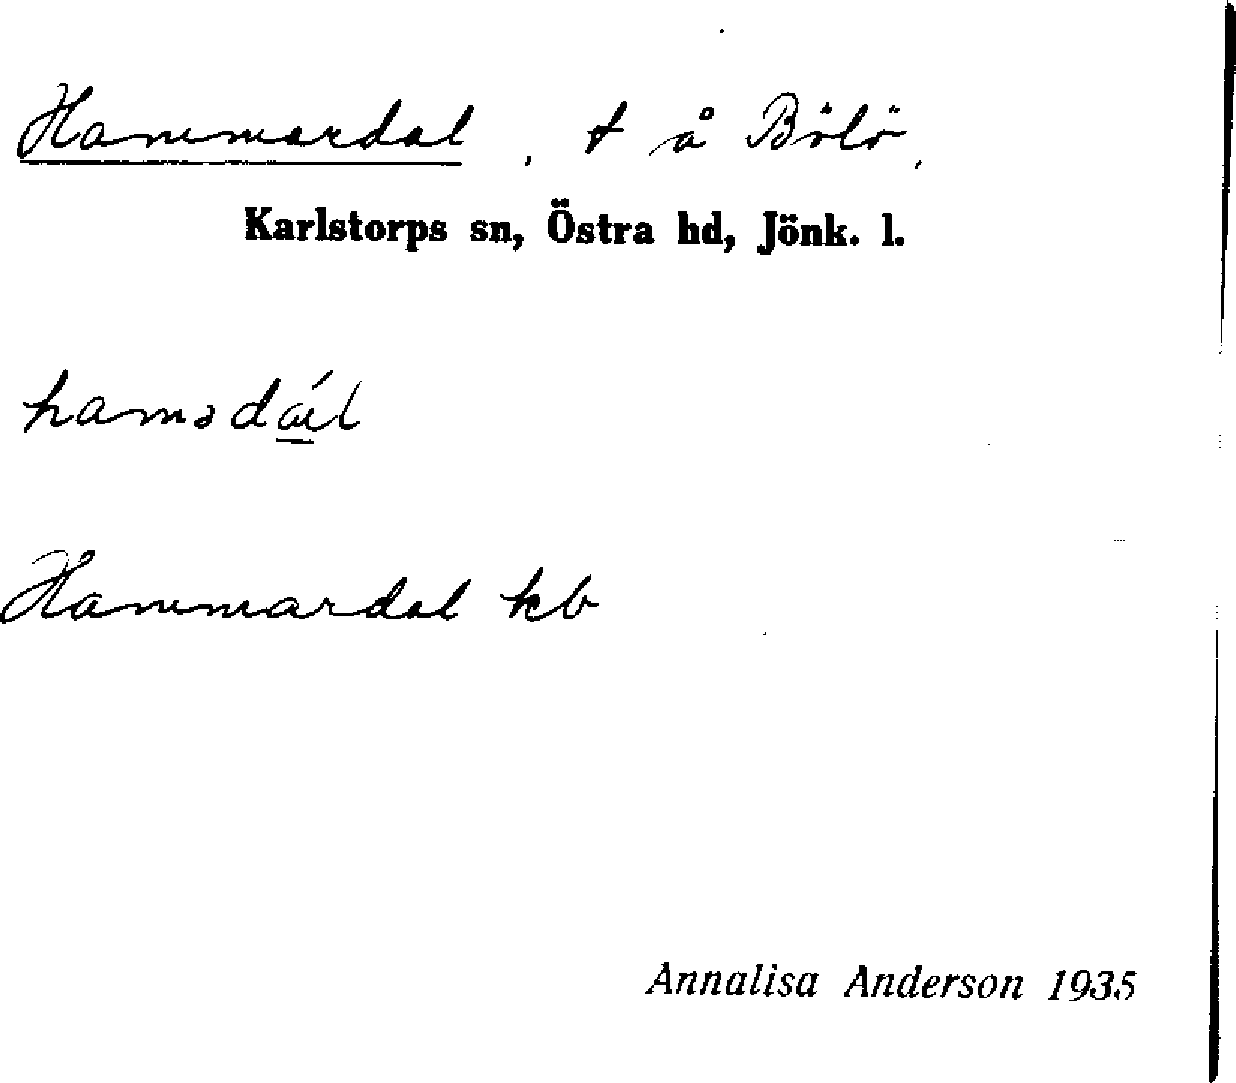 Hammardal, t å Bölö,
Karlstorps sn, Östra hd, Jönk. l.
hamədɑ́l
Hammardal kb
Annalisa Anderson 1935